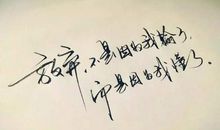 放弃，不是因为我输了，
而是因为我懂了．